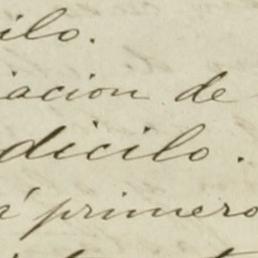 ilo.
iacion de
dicilo.
á primero